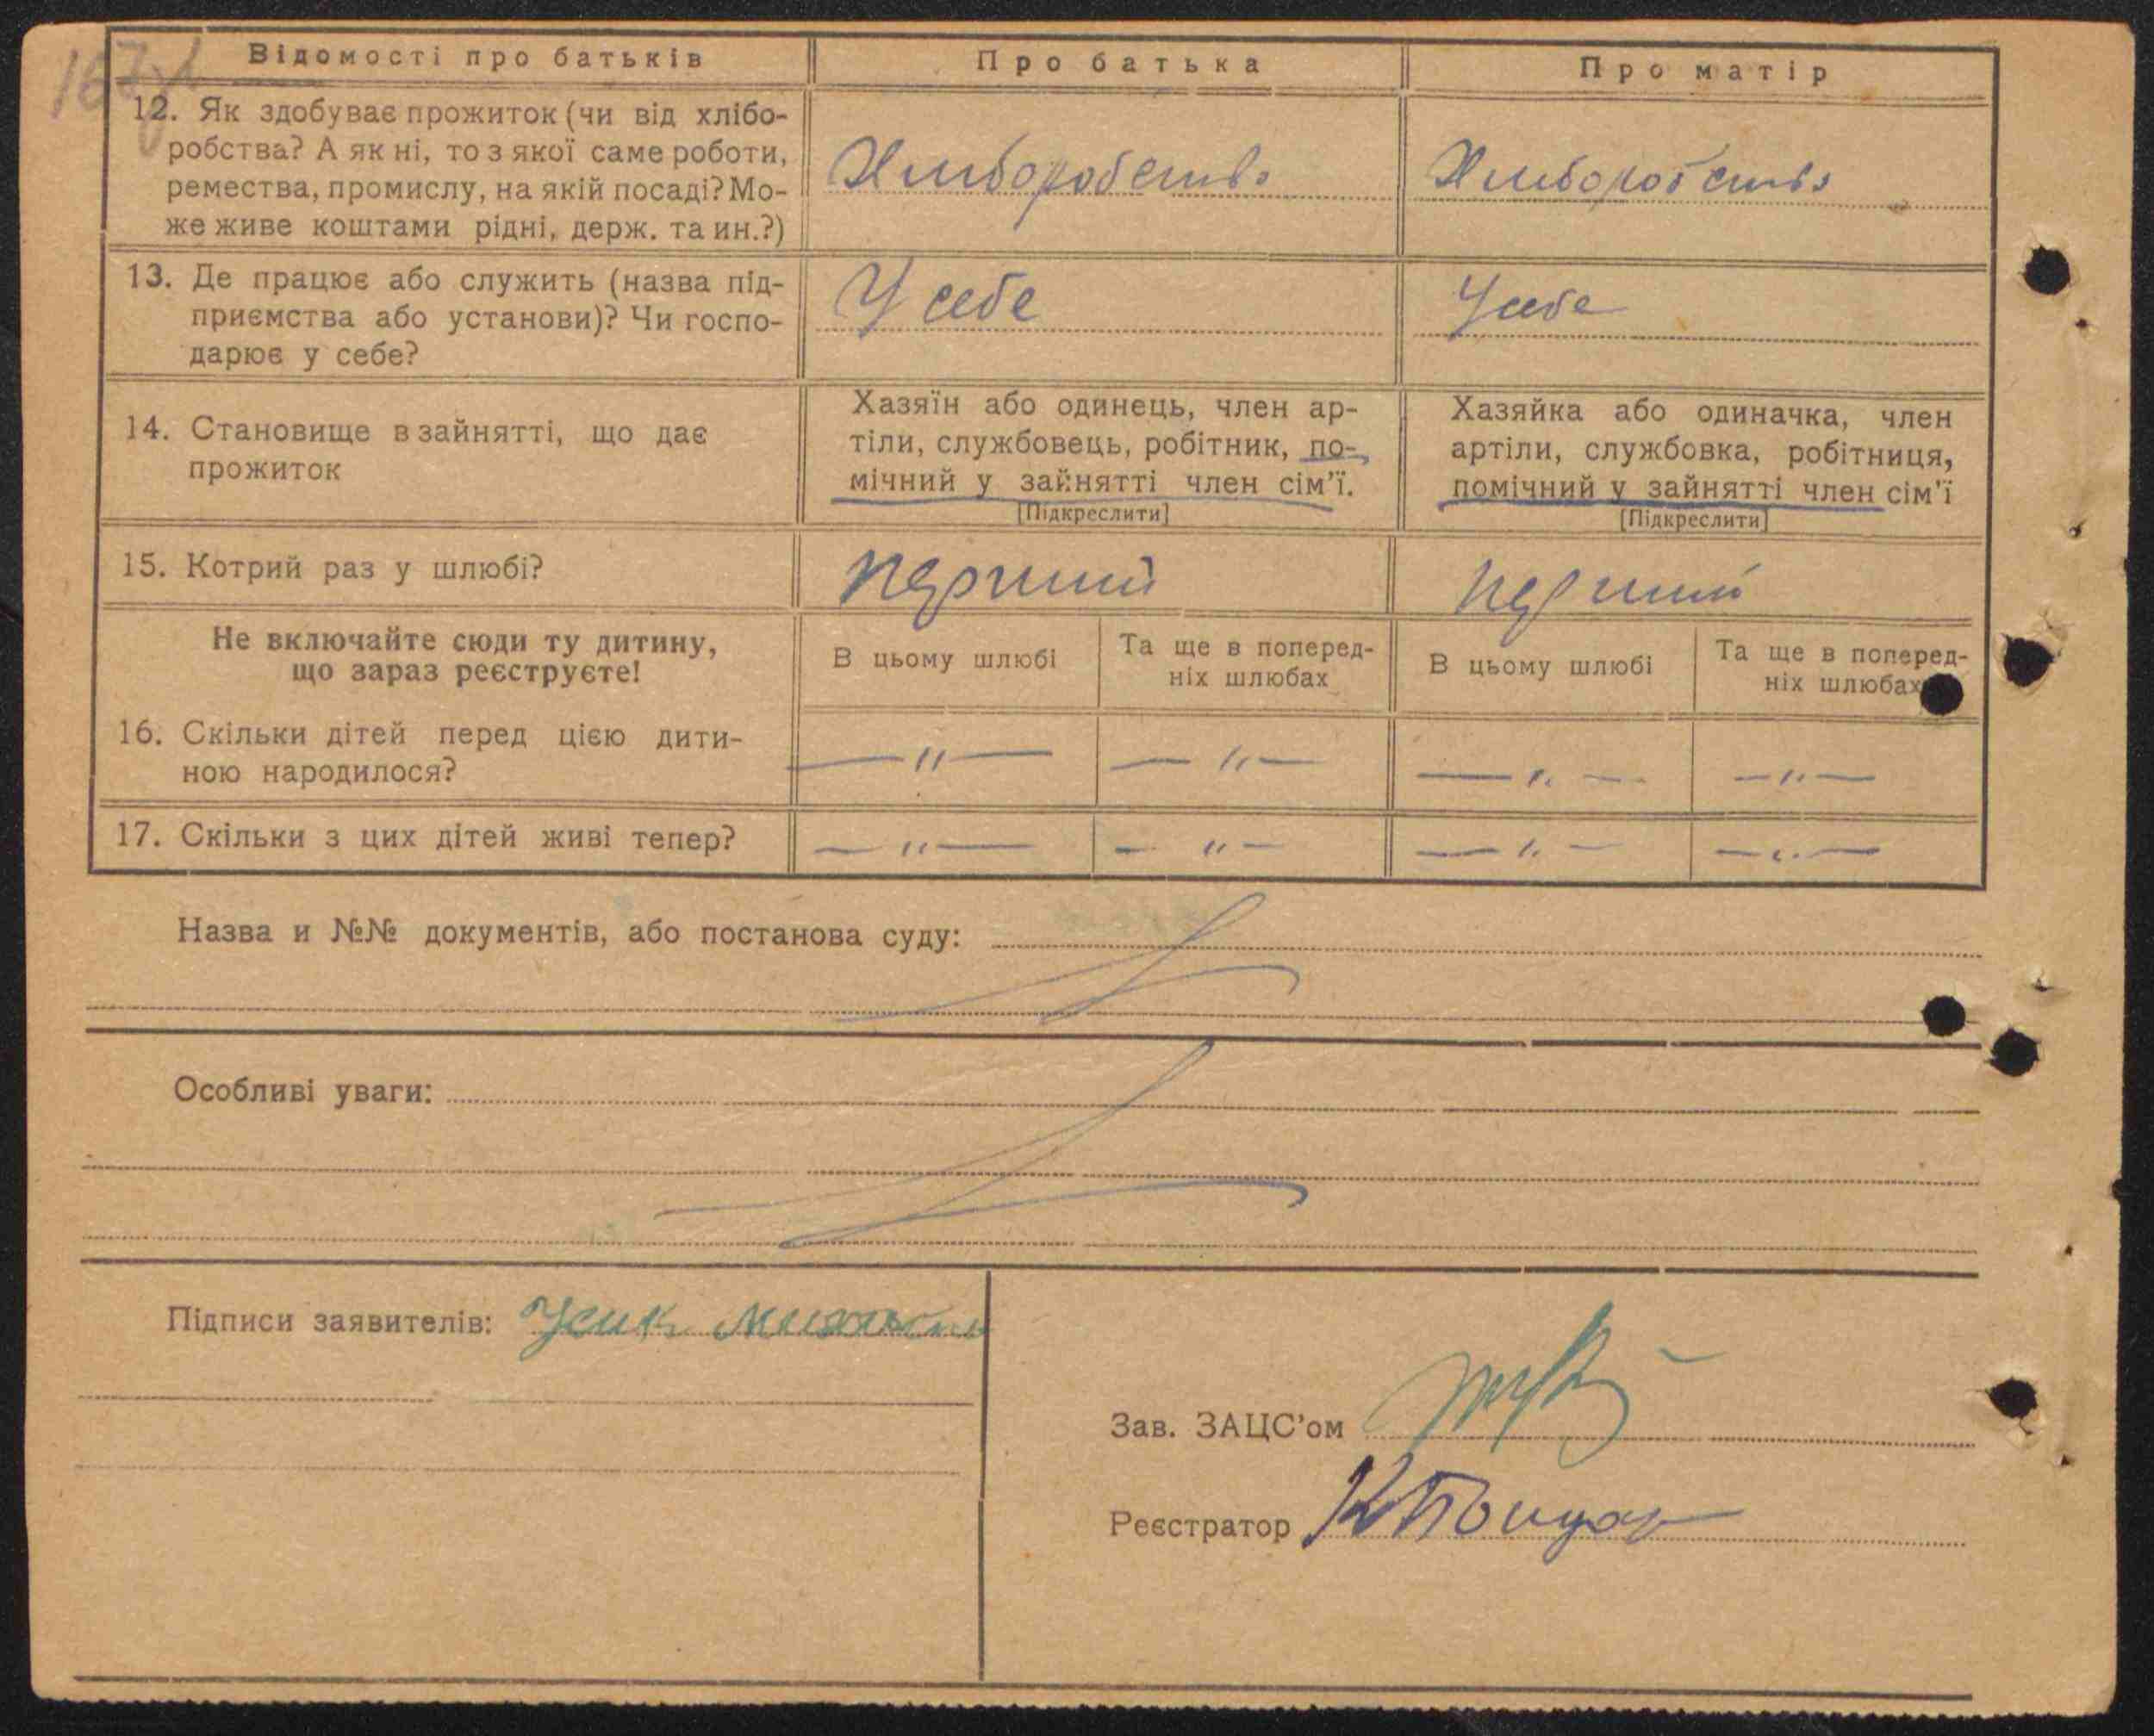 Відомості про батьків
Про батька
Про матір
12. Як здобуває прожиток (чи від хлібо-
робства? А як ні, то з якої саме роботи,
ремества, промислу, на якій посаді? Мо-
же живе коштами рідні, держ. та ин.?)
Хлиборобство
Хлиборобство
13. Де працює або служить (назва під-
приємства або установи)? Чи госпо-
дарює у себе?
У себе
У себе
14. Становище в зайнятті, що дає
прожиток
Хазяїн або одинець, член ар-
тіли, службовець, робітник, по-
мічний у зайнятті член сім'ї.
[Підкреслити]
Хазяйка або одиначка, член
артіли, службовка, робітниця,
помічний у зайнятті член сім'ї
[Підкреслити]
15. Котрий раз у шлюбі?
перший
перший
Не включайте сюди ту дитину,
що зараз реєструєте!
В цьому шлюбі
Та ще в поперед-
ніх шлюбах
В цьому шлюбі
Та ще в поперед-
ніх шлюбах
16. Скільки дітей перед цією дити-
ною народилося?
— " —
— " —
— " —
— " —
17. Скільки з цих дітей живі тепер?
— " —
— " —
— " —
— " —
Назва и №№ документів, або постанова суду:
Особливі уваги:
Підписи заявителів: Усик
Зав. ЗАЦС'ом
Реєстратор КБондар